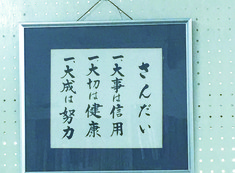 さんだい
一、大事は信用
一、大切は健康
一、大成は努力